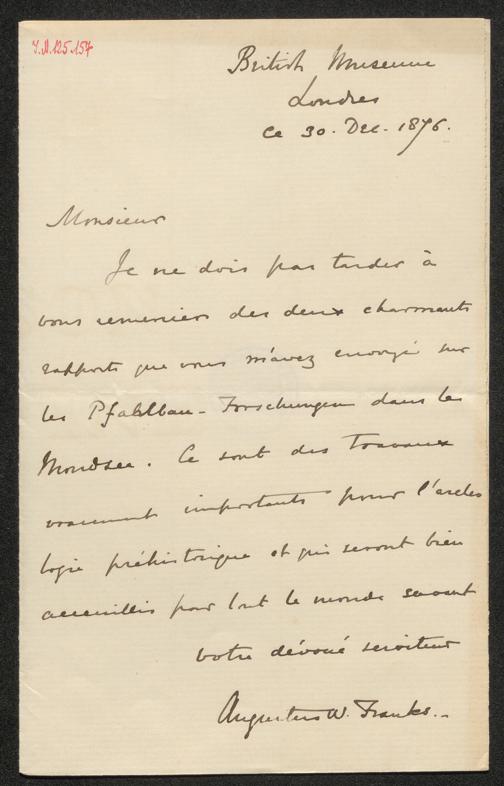 I.N.125.157
British Museum
Londres
ce 30. Dec. 1876.
Monsieur
Je ne dois pas tarder à
vous remercier des deux charmants
rapports que vous m'avez envoyé sur
les Pfahlbau-Forschungen dans le
Mondsee. Ce sont des travaux
vraiment importants pour l'archeo
logie préhistorique et qui seront bien
accueillis par tout le monde savant
Votre dévoué serviteur
Augustus W. Franks.